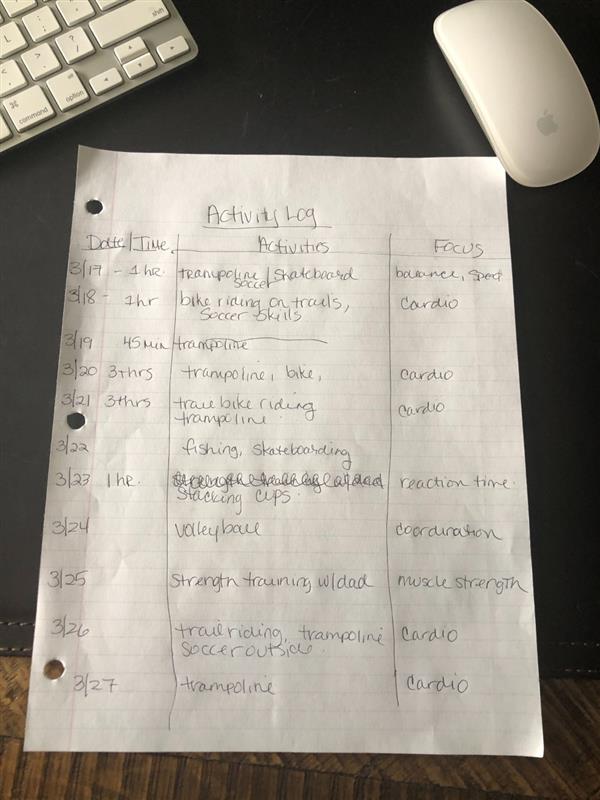 shift
command
option
Activity Log
Date/Time Activities Focus
3/17 - 1 hr. trampoline/skateboard balance,
soccer
3/18 - 1hr bike riding on trails, cardio
soccer skills
3/19 45 min trampoline
3/20 3+hrs trampoline, bike, cardio
3/21 3+hrs trail bike riding cardio
trampoline
3/22 fishing, skateboarding
3/23 1 hr. reaction time.
stacking cups.
3/24 volleyball coordination
3/25 strength training w/dad muscle strength
3/26 trail riding, trampoline cardio
soccer outside.
3/27 trampoline cardio